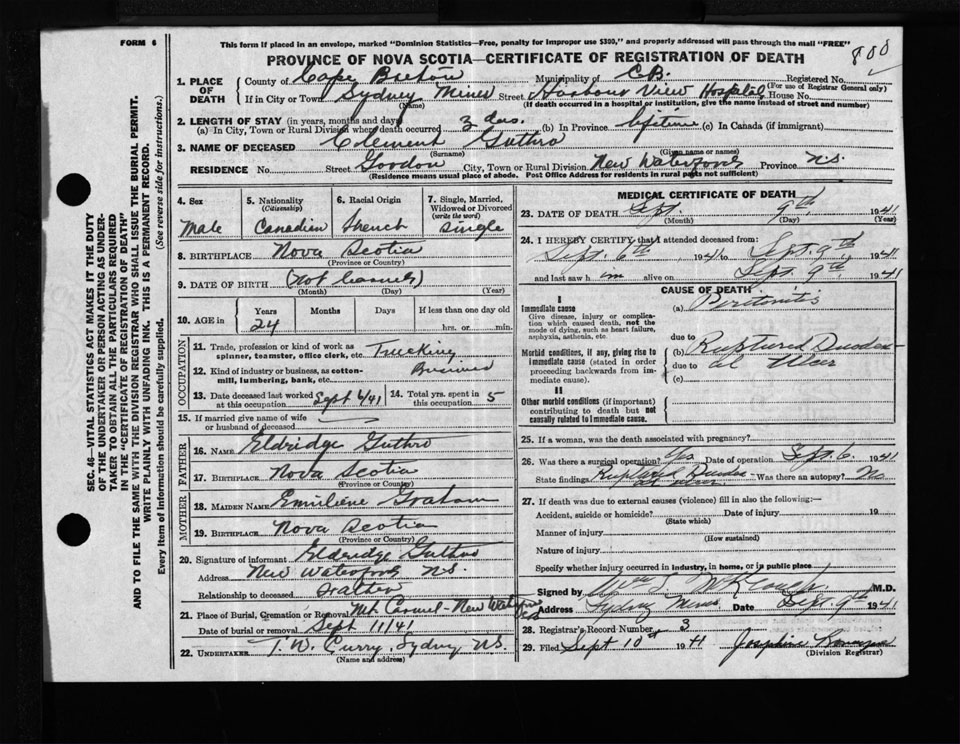 FORM 6
This form if placed in an envelope, marked "Dominion Statistics—Free, penalty for improper use $300," and properly addressed will pass through the mail "FREE"
PROVINCE OF NOVA SCOTIA—CERTIFICATE OF REGISTRATION OF DEATH
1. PLACE OF DEATH
County of Cape Breton Municipality of C.B. Registered No.
(For use of Registrar General only)
If in City or Town Sydney Mines Street Harbour View Hospital House No.
(Name) (If death occurred in a hospital or institution, give the name instead of street and number)
2. LENGTH OF STAY (in years, months and days)
(a) In City, Town or Rural Division where death occurred 3 das. (b) In Province lifetime (c) In Canada (if immigrant)
3. NAME OF DECEASED Clement Guthro
(Surname) (Given name or names)
RESIDENCE No. Street Gordon City, Town or Rural Division New Waterford Province N.S.
(Residence means usual place of abode. Post Office Address for residents in rural parts not sufficient)
4. Sex
Male
5. Nationality
(Citizenship)
Canadian
6. Racial Origin
French
7. Single, Married, Widowed or Divorced
(write the word)
Single
8. BIRTHPLACE Nova Scotia
(Province or Country)
9. DATE OF BIRTH (Not
(Month) (Day) (Year)
10. AGE in
Years Months Days If less than one day old
24 hrs. or min.
OCCUPATION
11. Trade, profession or kind of work as spinner, teamster, office clerk, etc. Trucking
12. Kind of industry or business, as cotton-mill, lumbering, bank, etc. Business
13. Date deceased last worked at this occupation Sept 6/41
14. Total yrs. spent in this occupation 5
15. If married give name of wife or husband of deceased
FATHER
16. NAME Eldridge Guthro
17. BIRTHPLACE Nova Scotia
(Province or Country)
MOTHER
18. MAIDEN NAME Emiliene Graham
19. BIRTHPLACE Nova Scotia
(Province or Country)
20. Signature of informant Eldridge Guthro
Address New Waterford N.S.
Relationship to deceased Father
21. Place of Burial, Cremation or Removal Mt. Carmel - New Waterford
Date of burial or removal Sept 11/41
22. UNDERTAKER T. W. Curry, Sydney N.S.
(Name and address)
MEDICAL CERTIFICATE OF DEATH
23. DATE OF DEATH Sept. 9th, 1941
(Month) (Day) (Year)
24. I HEREBY CERTIFY that I attended deceased from:
Sept. 6th, 1941 to Sept. 9th, 1941
and last saw him alive on Sept. 9th, 1941
CAUSE OF DEATH
I
Immediate cause
Give disease, injury or complication which caused death, not the mode of dying, such as heart failure, asphyxia, asthenia, etc.
(a) Peritonitis
due to
Morbid conditions, if any, giving rise to immediate cause (stated in order proceeding backwards from immediate cause).
(b) Ruptured Duoden-
due to al Ulcer
(c)
II
Other morbid conditions (if important) contributing to death but not causally related to immediate cause.
25. If a woman, was the death associated with pregnancy?
26. Was there a surgical operation? Yes Date of operation Sept. 6. 1941
State findings Ruptured Duoden- al ulcer Was there an autopsy? No
27. If death was due to external causes (violence) fill in also the following:—
Accident, suicide or homicide? Date of injury 19
(State which)
Manner of injury
(How sustained)
Nature of injury
Specify whether injury occurred in industry, in home, or in public place
Signed by M.D.
Address Sydney Mines Date Sept. 9th 1941
28. Registrar's Record Number 3
29. Filed Sept 10th 1941 Josephine
(Division Registrar)
SEC. 46—VITAL STATISTICS ACT MAKES IT THE DUTY
OF THE UNDERTAKER OR PERSON ACTING AS UNDER-
TAKER TO OBTAIN ALL THE PARTICULARS REQUIRED
IN THE "CERTIFICATE OF REGISTRATION OF DEATH"
AND TO FILE THE SAME WITH THE DIVISION REGISTRAR WHO SHALL ISSUE THE BURIAL PERMIT.
WRITE PLAINLY WITH UNFADING INK. THIS IS A PERMANENT RECORD.
Every item of information should be carefully supplied. (See reverse side for instructions.)